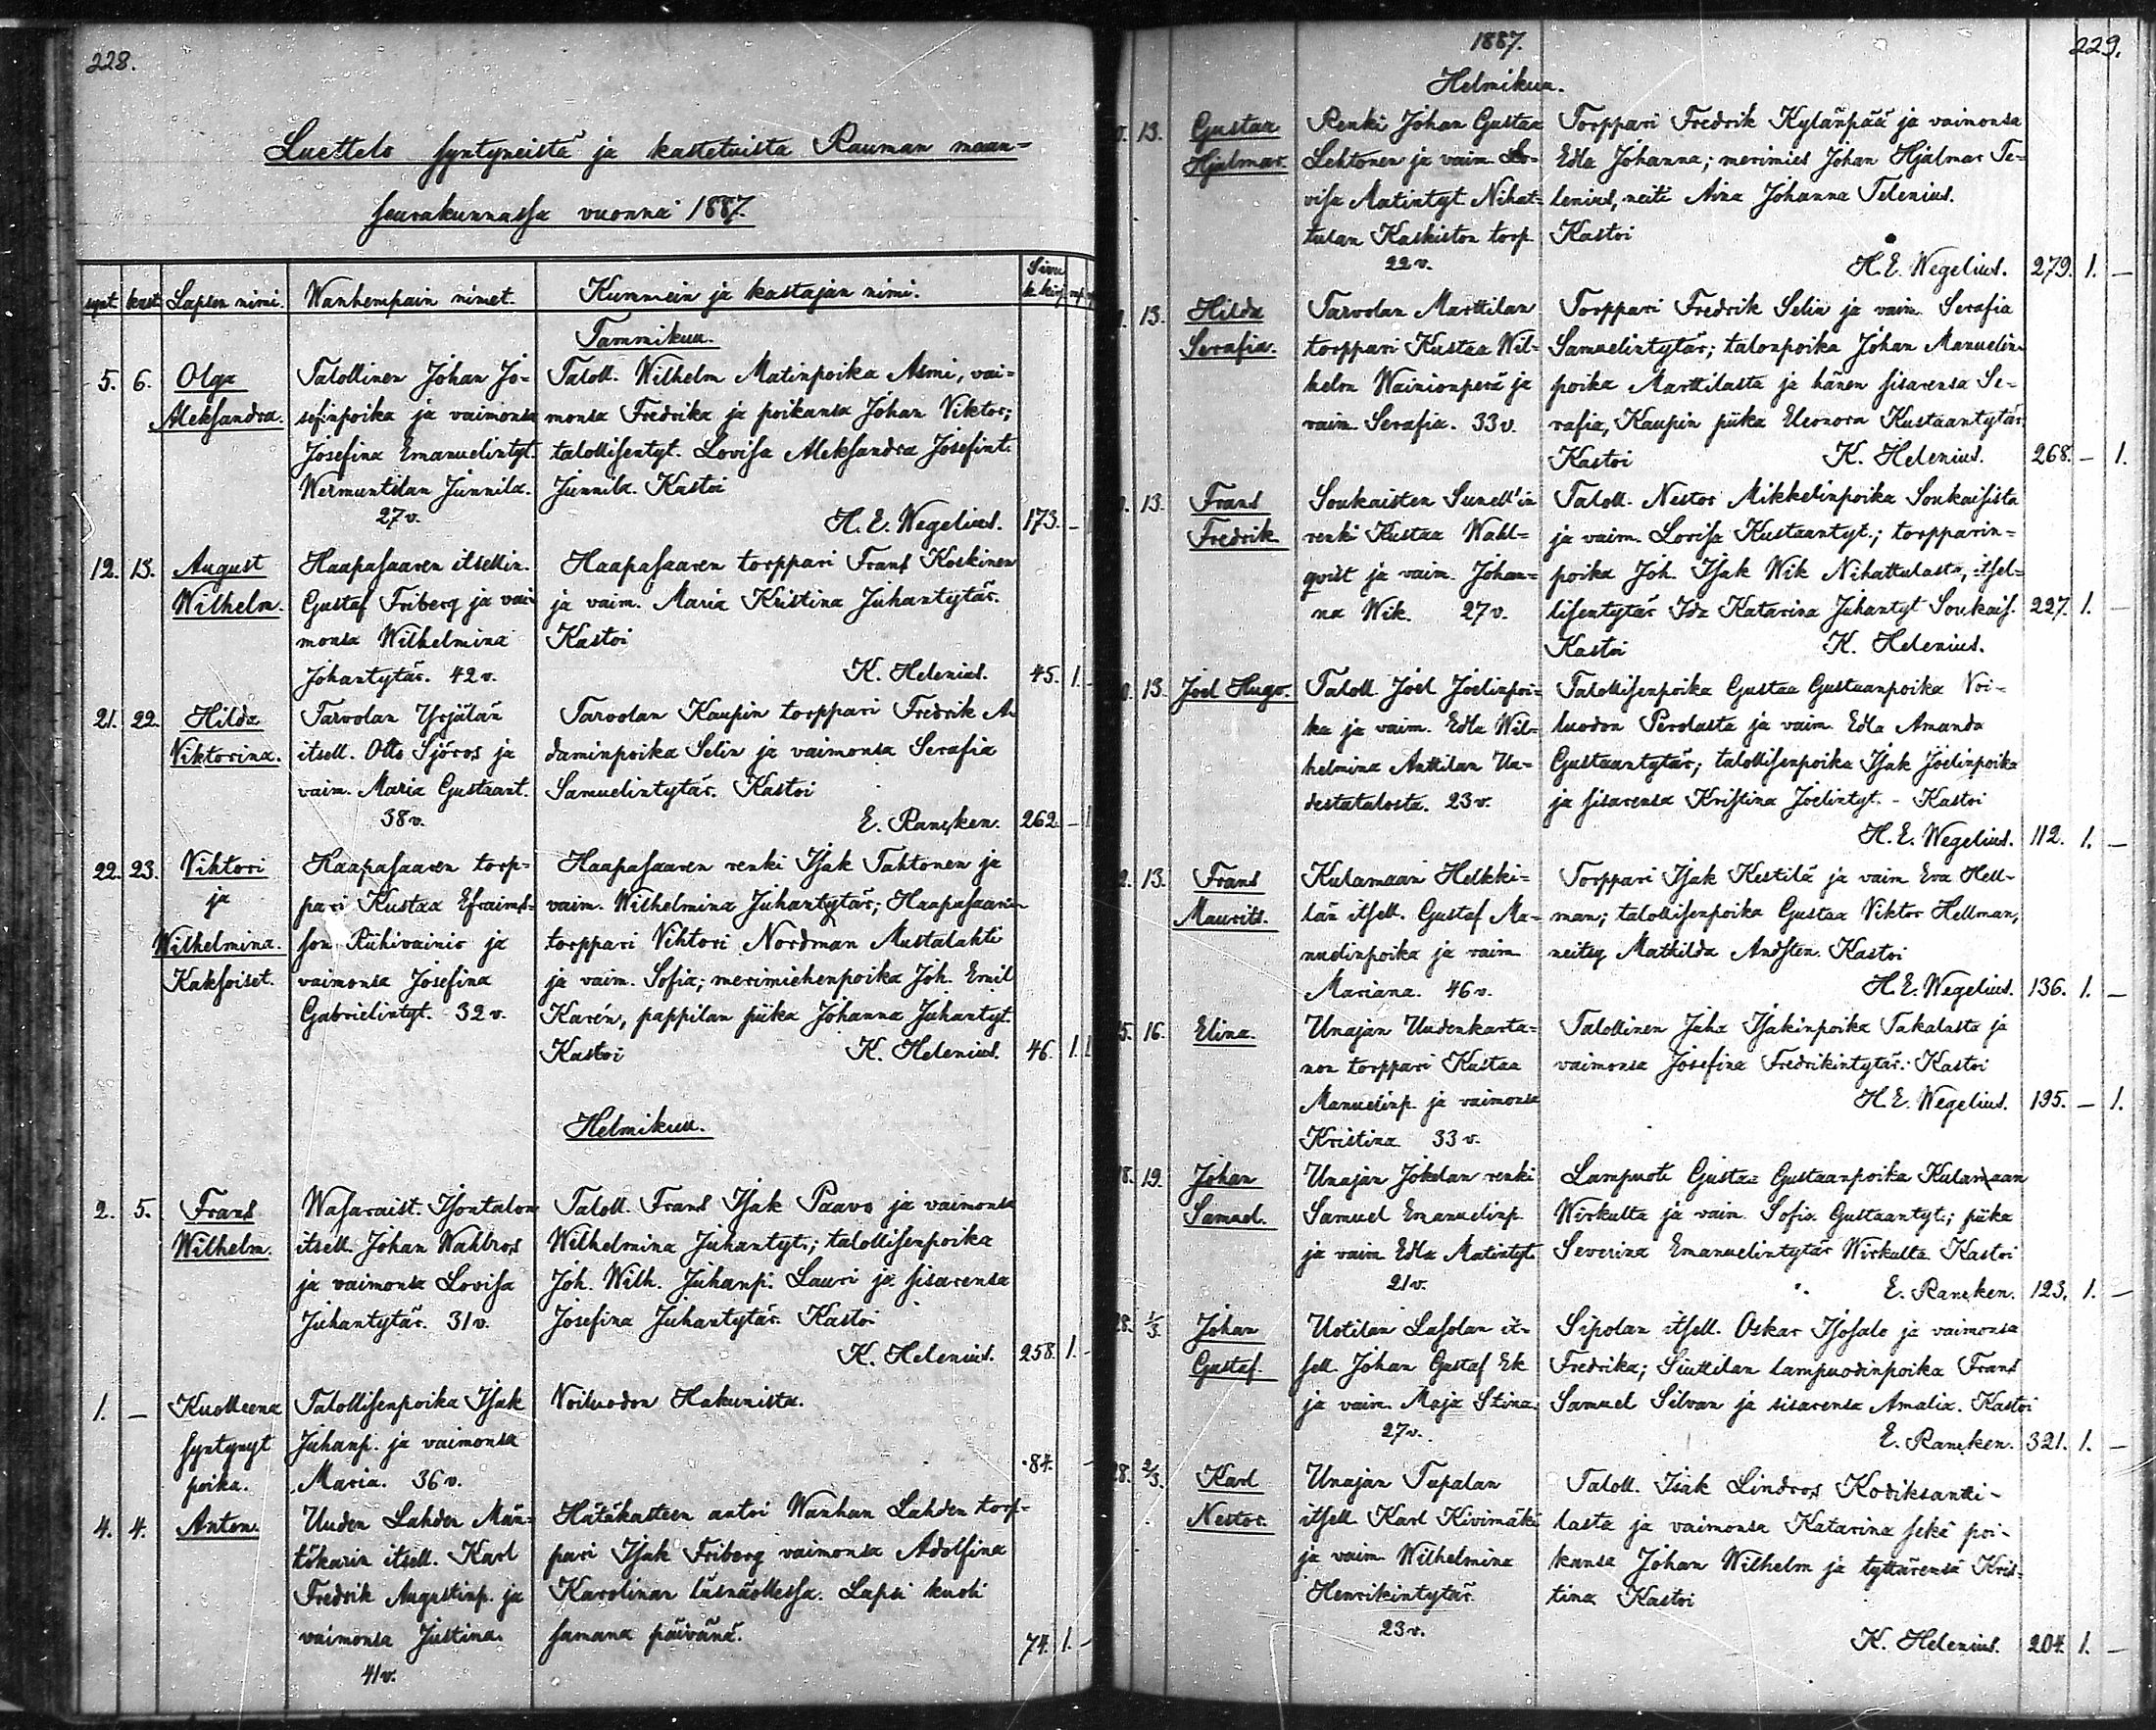 228.
Luettelo syntyneistä ja kastetuista Rauman maan-
seurakunnassa vuonna 1887.
synt. kast. Lapsen nimi. Wanhempain nimet. Kummein ja kastajan nimi. Sivu k. kirj.
Tammikuu.
5. 6. Olga Talollinen Johan Jo- Taloll. Wilhelm Matinpoika Äimi, vai-
Aleksandra. sefinpoika ja vaimonsa monsa Fredrika ja poikansa Johan Viktor;
Josefina Emanuelintyt. talollisentyt. Lovisa Aleksandra Josefint.
Wermuntilan Junnila. Junnila. Kastoi
27 v. H. E. Wegelius. 173. –
12. 13. August Haapasaaren itsellin. Haapasaaren torppari Frans Koskinen
Wilhelm. Gustaf Friberg ja vai- ja vaim. Maria Kristina Juhantytär.
monsa Wilhelmina Kastoi
Johantytär. 42 v. K. Helenius. 45. 1.
21. 22. Hilda Tarvolan Yrjälän Tarvolan Kaupin torppari Fredrik A-
Viktorina. itsell. Otto Sjöros ja daminpoika Selin ja vaimonsa Serafia
vaim. Maria Gustaant. Samuelintytär. Kastoi
38 v. E. Rancken. 262. –
22. 23. Vihtori Haapasaaren torp- Haapasaaren renki Isak Tahtonen ja
ja pari Kustaa Efraims- vaim. Wilhelmina Juhantytär; Haapasaaren
Wilhelmina. son Riihivainio ja torppari Vihtori Nordman Mustalahti
Kaksoiset. vaimonsa Josefina ja vaim. Sofia; merimiehenpoika Joh. Emil
Gabrielintyt. 32 v. Karén, pappilan piika Johanna Juhantyt.
Kastoi K. Helenius. 46. 1. 1
Helmikuu.
2. 5. Frans Wasaraist. Isontalon Taloll. Frans Isak Paavo ja vaimonsa
Wilhelm. itsell. Johan Wahlros Wilhelmina Juhantyt.; talollisenpoika
ja vaimonsa Lovisa Joh. Wilh. Juhanp. Lauri ja sisarensa
Juhantytär. 31 v. Josefina Juhantytär. Kastoi
K. Helenius. 258. 1. –
1. – Kuolleena Talollisenpoika Isak Voiluodon Hakunista.
syntynyt Juhanp. ja vaimonsa
poika. Maria. 36 v. 84. –
4. 4. Anton. Uuden Lahden Män- Hätäkasteen antoi Wanhan Lahden torp-
tökarin itsell. Karl pari Isak Friberg vaimonsa Adolfina
Fredrik Augustinp. ja Karolinan läsnäollessa. Lapsi kuoli
vaimonsa Justina. samana päivänä. 74. 1. –
41 v.
1887. 229.
Helmikuu.
13. Gustaa Renki Johan Gustaa Torppari Fredrik Kylänpää ja vaimonsa
Hjalmar. Lehtonen ja vaim. Lo- Edla Johanna; merimies Johan Hjalmar Te-
visa Matintyt. Nihat- lenius, neiti Aina Johanna Telenius.
tulan Kaskiston torp. Kastoi
22 v. H. E. Wegelius. 279. 1. –
13. Hilda Tarvolan Marttilan Torppari Fredrik Selin ja vaim. Serafia
Serafia. torppari Kustaa Wil- Samuelintytär; talonpoika Johan Manuelin-
helm Wainionperä ja poika Marttilasta ja hänen sisarensa Se-
vaim. Serafia. 33 v. rafia, Kaupin piika Eleonora Kustaantytär.
Kastoi K. Helenius. 268. – 1.
13. Frans Soukaisten Sunell'in Taloll. Nestor Mikkelinpoika Soukaisista
Fredrik renki Kustaa Wahl- ja vaim. Lovisa Kustaantyt.; torpparin-
qvist ja vaim. Johan- poika Joh. Isak Wik Nihattulasta, itsel-
na Wik. 27 v. lisentytär Ida Katarina Juhantyt Soukais. 227. 1. –
Kastoi K. Helenius.
13. Joel Hugo. Taloll. Joel Joelinpoi- Talollisenpoika Gustaa Gustaanpoika Voi-
ka ja vaim. Edla Wil- luodon Perolasta ja vaim. Edla Amanda
helmina Anttilan Uu- Gustaantytär; talollisenpoika Isak Joelinpoika
destatalosta. 23 v. ja sisarensa Kristina Joelintyt. – Kastoi
H. E. Wegelius. 112. 1. –
2. 13. Frans Kulamaan Heikki- Torppari Isak Kestilä ja vaim Eva Hell-
Maurits. län itsell. Gustaf Ma- man; talollisenpoika Gustaa Viktor Hellman,
nuelinpoika ja vaim neitsy Mathilda Andsten. Kastoi
Mariana. 46 v. H. E. Wegelius. 136. 1. –
5. 16. Elina. Unajan Uudenkarta- Talollinen Juha Isakinpoika Takalasta ja
non torppari Kustaa vaimonsa Josefina Fredrikintytär. Kastoi
Manuelinp. ja vaimonsa H. E. Wegelius. 195. – 1.
Kristina 33 v.
8. 19. Johan Unajan Jokelan renki Lampuoti Gustaa Gustaanpoika Kulamaan
Samuel. Samuel Emanuelinp. Wirkulta ja vaim. Sofia Gustaantyt.; piika
ja vaim Edla Matintyt. Severina Emanuelintytär Wirkulta. Kastoi
21 v. E. Rancken. 123. 1. –
28. 1/3. Johan Uotilan Lasolan it- Sipolan itsell. Oskar Isosalo ja vaimonsa
Gustaf. sell. Johan Gustaf Ek Fredrika; Siuttilan lampuodinpoika Frans
ja vaim. Maja Stina. Samuel Silvan ja sisarensa Amalia. Kastoi
27 v. E. Rancken. 321. 1. –
28. 2/3. Karl Unajan Tupalan Taloll. Isak Lindros Kodiksantti-
Nestor. itsell. Karl Kivimäki lasta ja vaimonsa Katarina sekä poi-
ja vaim Wilhelmina kansa Johan Wilhelm ja tyttärensä Kris-
Henrikintytär. tina Kastoi
23 v. K. Helenius. 204. 1. –